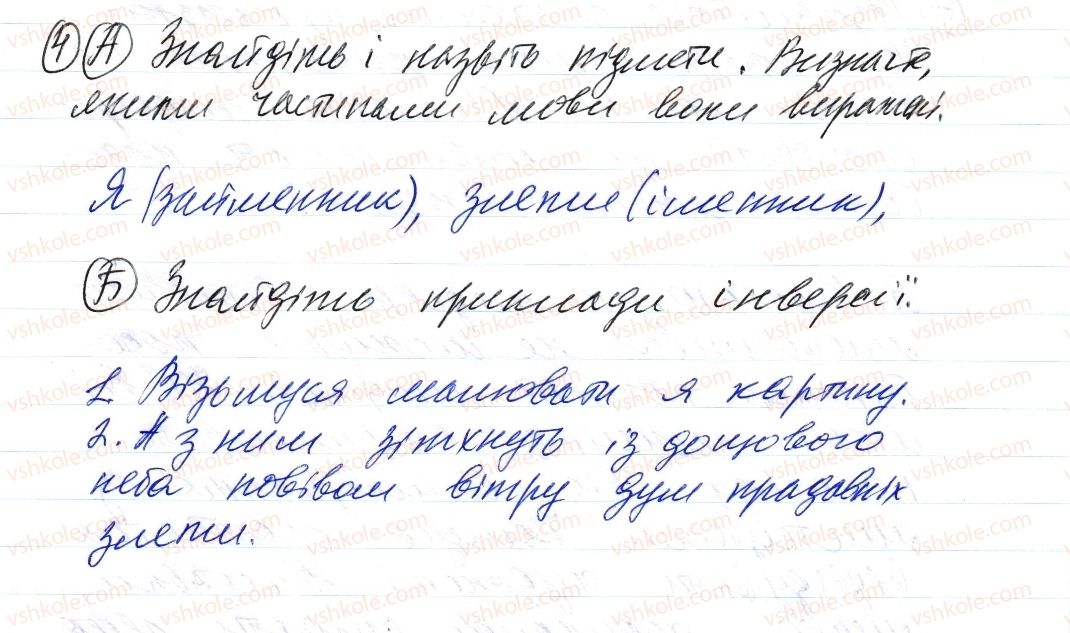 4 А Знайдіть і назвіть підмети. Визначте,
якими частинами мови вони виражені.
Я (займенник), злети (іменник),
Б Знайдіть приклади інверсії.
1. Візьмуся малювати я картину.
2. А з ним зітхнуть із дощового
неба повівом вітру дум прадавніх
злети.